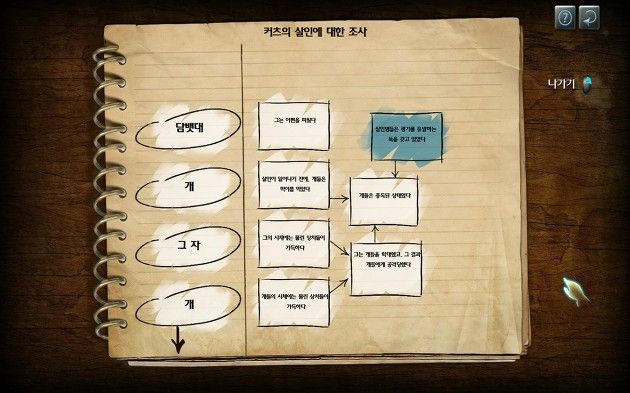 커츠의 살인에 대한 조사
나가기
담뱃대
그는 아편을 피웠다
살인범들은 광기를 유발하는
독을 갖고 있었다
개
살인이 일어나기 전에, 개들은
먹이를 먹었다
개들은 중독된 상태였다
그 자
그의 시체에는 물린 상처들이
가득하다
그는 개들을 학대했고, 그 결과
개들에게 공격당했다
개
개들의 시체에는 물린 상처들이
가득하다